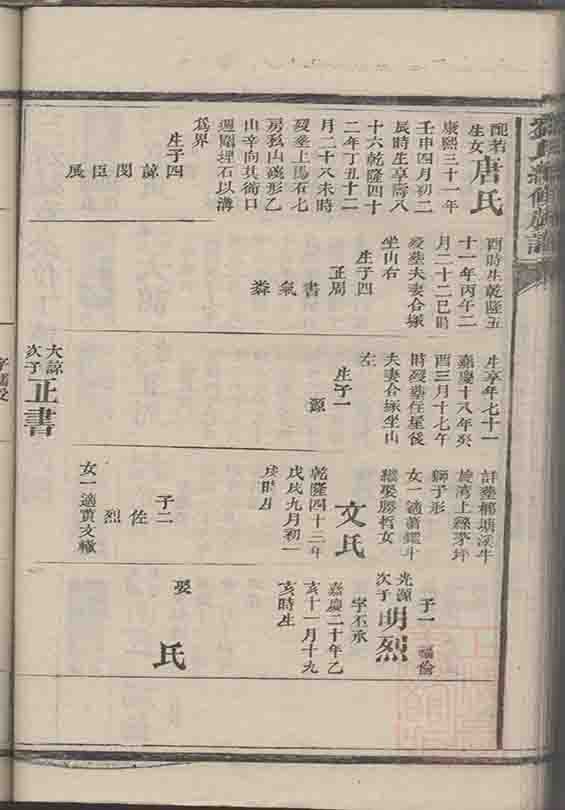 配若
生女
唐氏
康熙三十一年
壬申四月初二
辰時生享壽八
十六乾隆四十
二年丁丑十二
月二十八未時
歿塋上馬石七
房私山
形乙
山辛向其衕口
週圍埋石以溝
為界
生子四
諒
閔
臣
展
酉時生乾隆五
十一年丙午二
月二十二巳時
歿塋夫妻合塚
坐山右
生子四
正周
書
氣
生享年七十一
嘉慶十八年癸
酉三月十七午
時歿塋在屋後
夫妻合塚坐山
左
生子一
源
大諒
次子
正書
詳塋
塘溪牛
灣上綠茅坪
獅子形
女一適蕭
斗
娶勝哲女
文氏
乾隆四十三年
戊戌九月初一
戌時生
子二
佐
烈
女一適黃文
子一
倫
光源
次子
明烈
字丕承
嘉慶二十年乙
亥十一月十九
亥時生
娶
氏